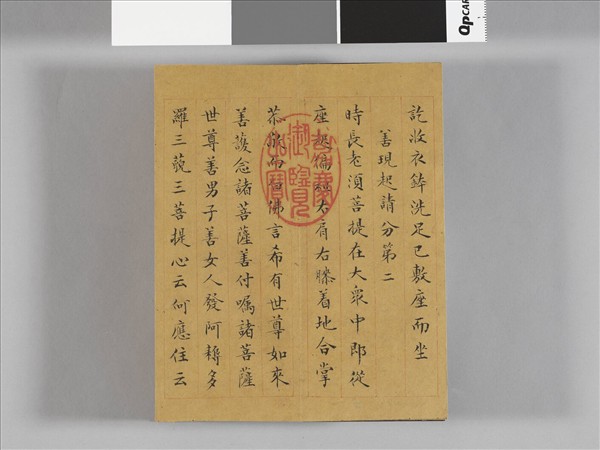 訖收衣鉢洗足已敷座而坐
善現起請分第二
時長老須菩提在大眾中即從
座起偏袒右肩右膝着地合掌
恭敬而白佛言希有世尊如來
善護念諸菩薩善付囑諸菩薩
世尊善男子善女人發阿耨多
羅三藐三菩提心云何應住云
嘉慶御覽之寶
QPCARD